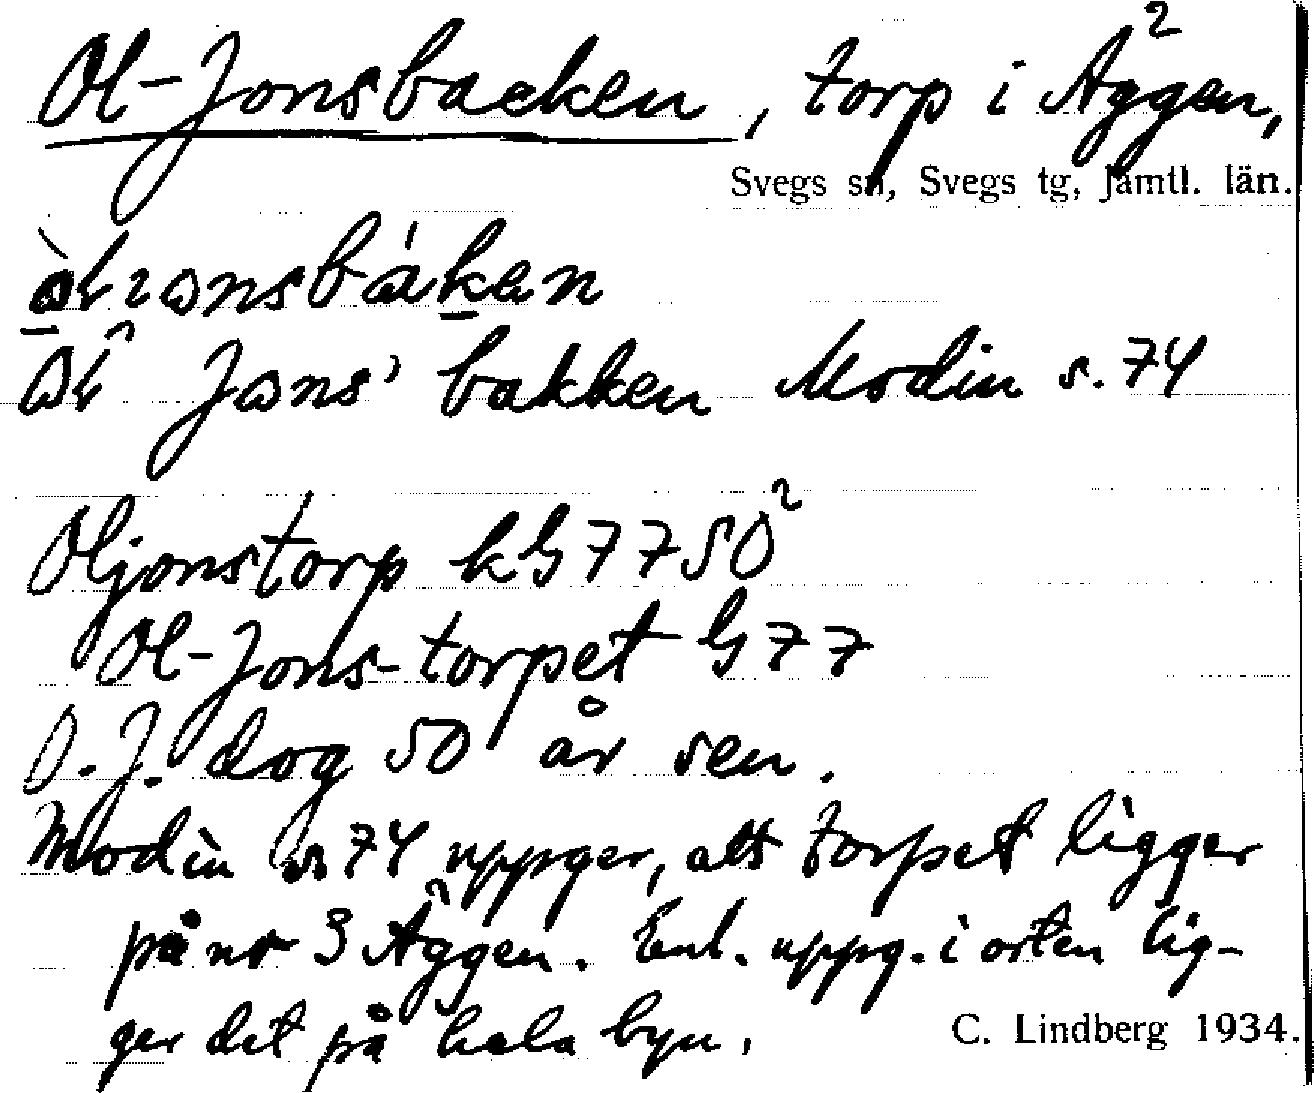 Ol-Jonsbacken, torp i Äggen²,
Svegs sn, Svegs tg, Jämtl. län.
Jons' bakken Modin s. 74
Oljonstorp kG 77 50²
Ol-Jons-torpet G 77
O.J. dog 50 år sen.
Modin s 74 uppger, att torpet ligger
på nr 3 Äggen. Enl. uppg. i orten lig-
ger det på hela byn.
C. Lindberg 1934.